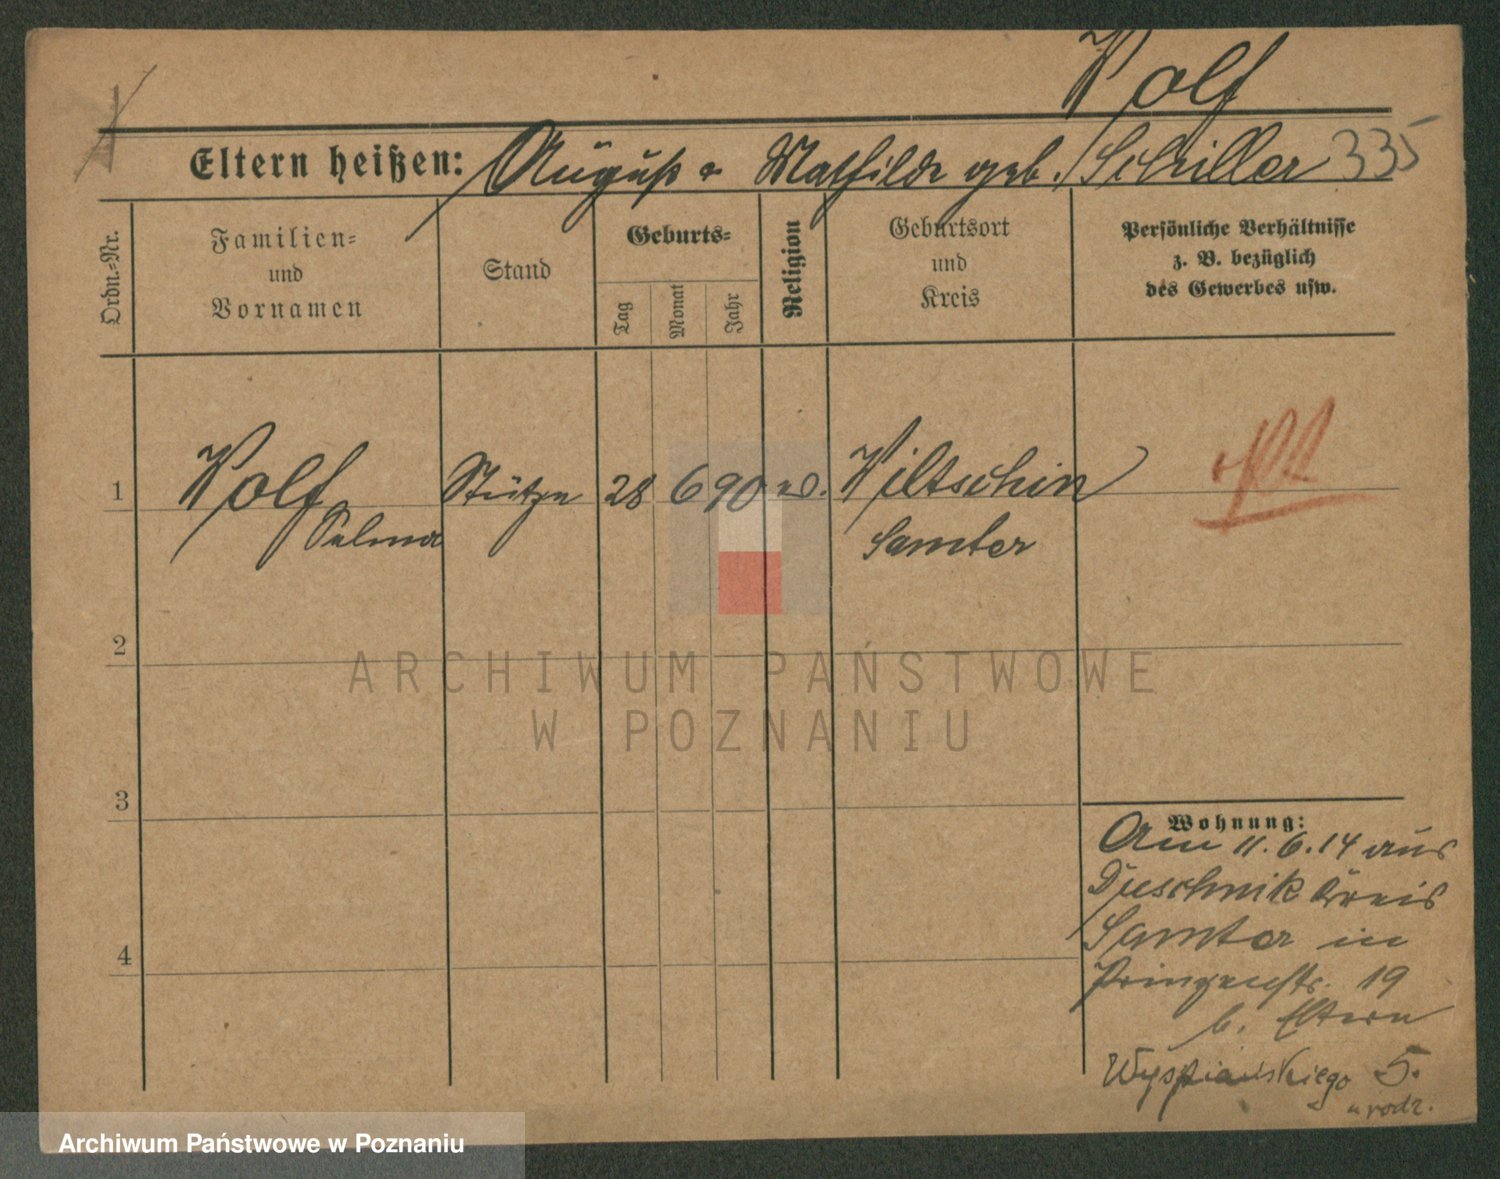 Wolf
Eltern heißen: August & Mathilde geb. Schiller 335
Ordn.-Nr.
Familien-
und
Vornamen
Stand
Geburts-
Tag
Monat
Jahr
Religion
Geburtsort
und
Kreis
Persönliche Verhältnisse
z. B. bezüglich
des Gewerbes usw.
1 Wolf Stütze 28 6 90 Wiltschin
Selma Samter
2
3
4
ARCHIWUM PAŃSTWOWE
W POZNANIU
Wohnung:
Am 11.6.14 aus
Duschnik Kreis
Samter in
Prinzenstr. 19
b. Eltern
Wyspiańskiego 5.
u rodz.
Archiwum Państwowe w Poznaniu